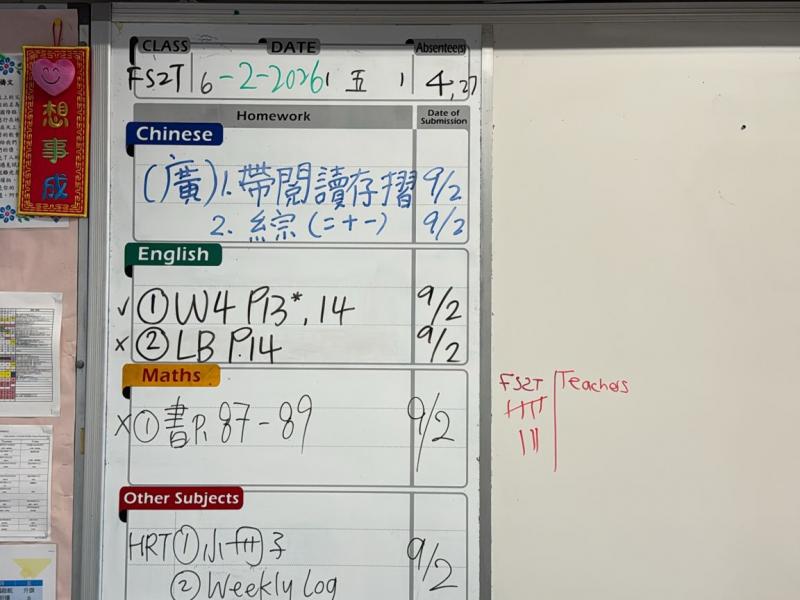 CLASS DATE Absentee(s)
FS2T 6-2-2026 五 4, 27
Homework Date of Submission
Chinese
(廣) 1. 帶閱讀存摺 9/2
2. 綜(二十一) 9/2
English
✓ ① W4 P.13*, 14 9/2
x ② LB P.14 9/2
Maths
x ① 書P. 87-89 9/2
Other Subjects
HRT ① 小冊子 9/2
② Weekly Log
想事成
FS2T Teachers